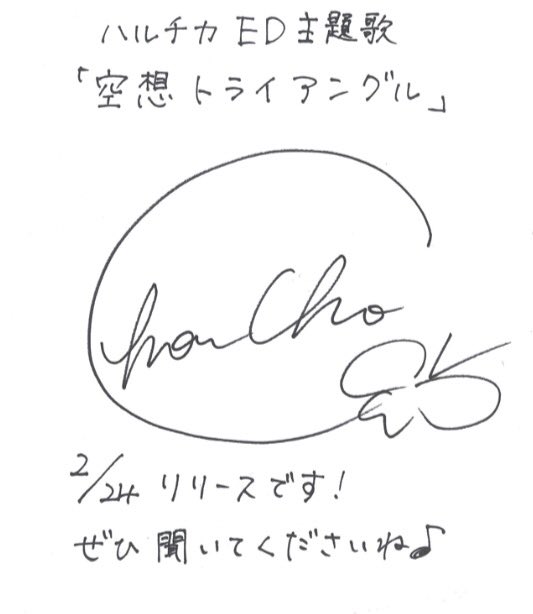 ハルチカ ED 主題歌
「空想トライアングル」
ChouCho
2/24 リリースです!
ぜひ聞いてくださいね♪